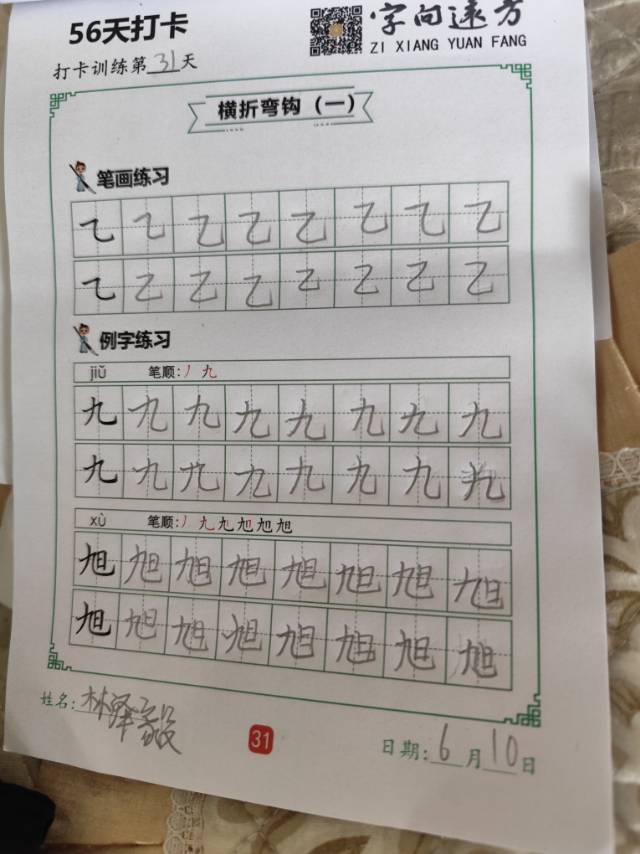 56天打卡
字向远方
ZI XIANG YUAN FANG
打卡训练第31天
横折弯钩（一）
笔画练习
乙 乙 乙 乙 乙 乙 乙 乙
乙 乙 乙 乙 乙 乙 乙 乙
例字练习
jiǔ 笔顺:丿 九
九 九 九 九 九 九 九 九
九 九 九 九 九 九 九 九
xù 笔顺:丿 九 九 旭 旭 旭
旭 旭 旭 旭 旭 旭 旭 旭
旭 旭 旭 旭 旭 旭 旭 旭
姓名:林泽毅
31
日期:6月10日